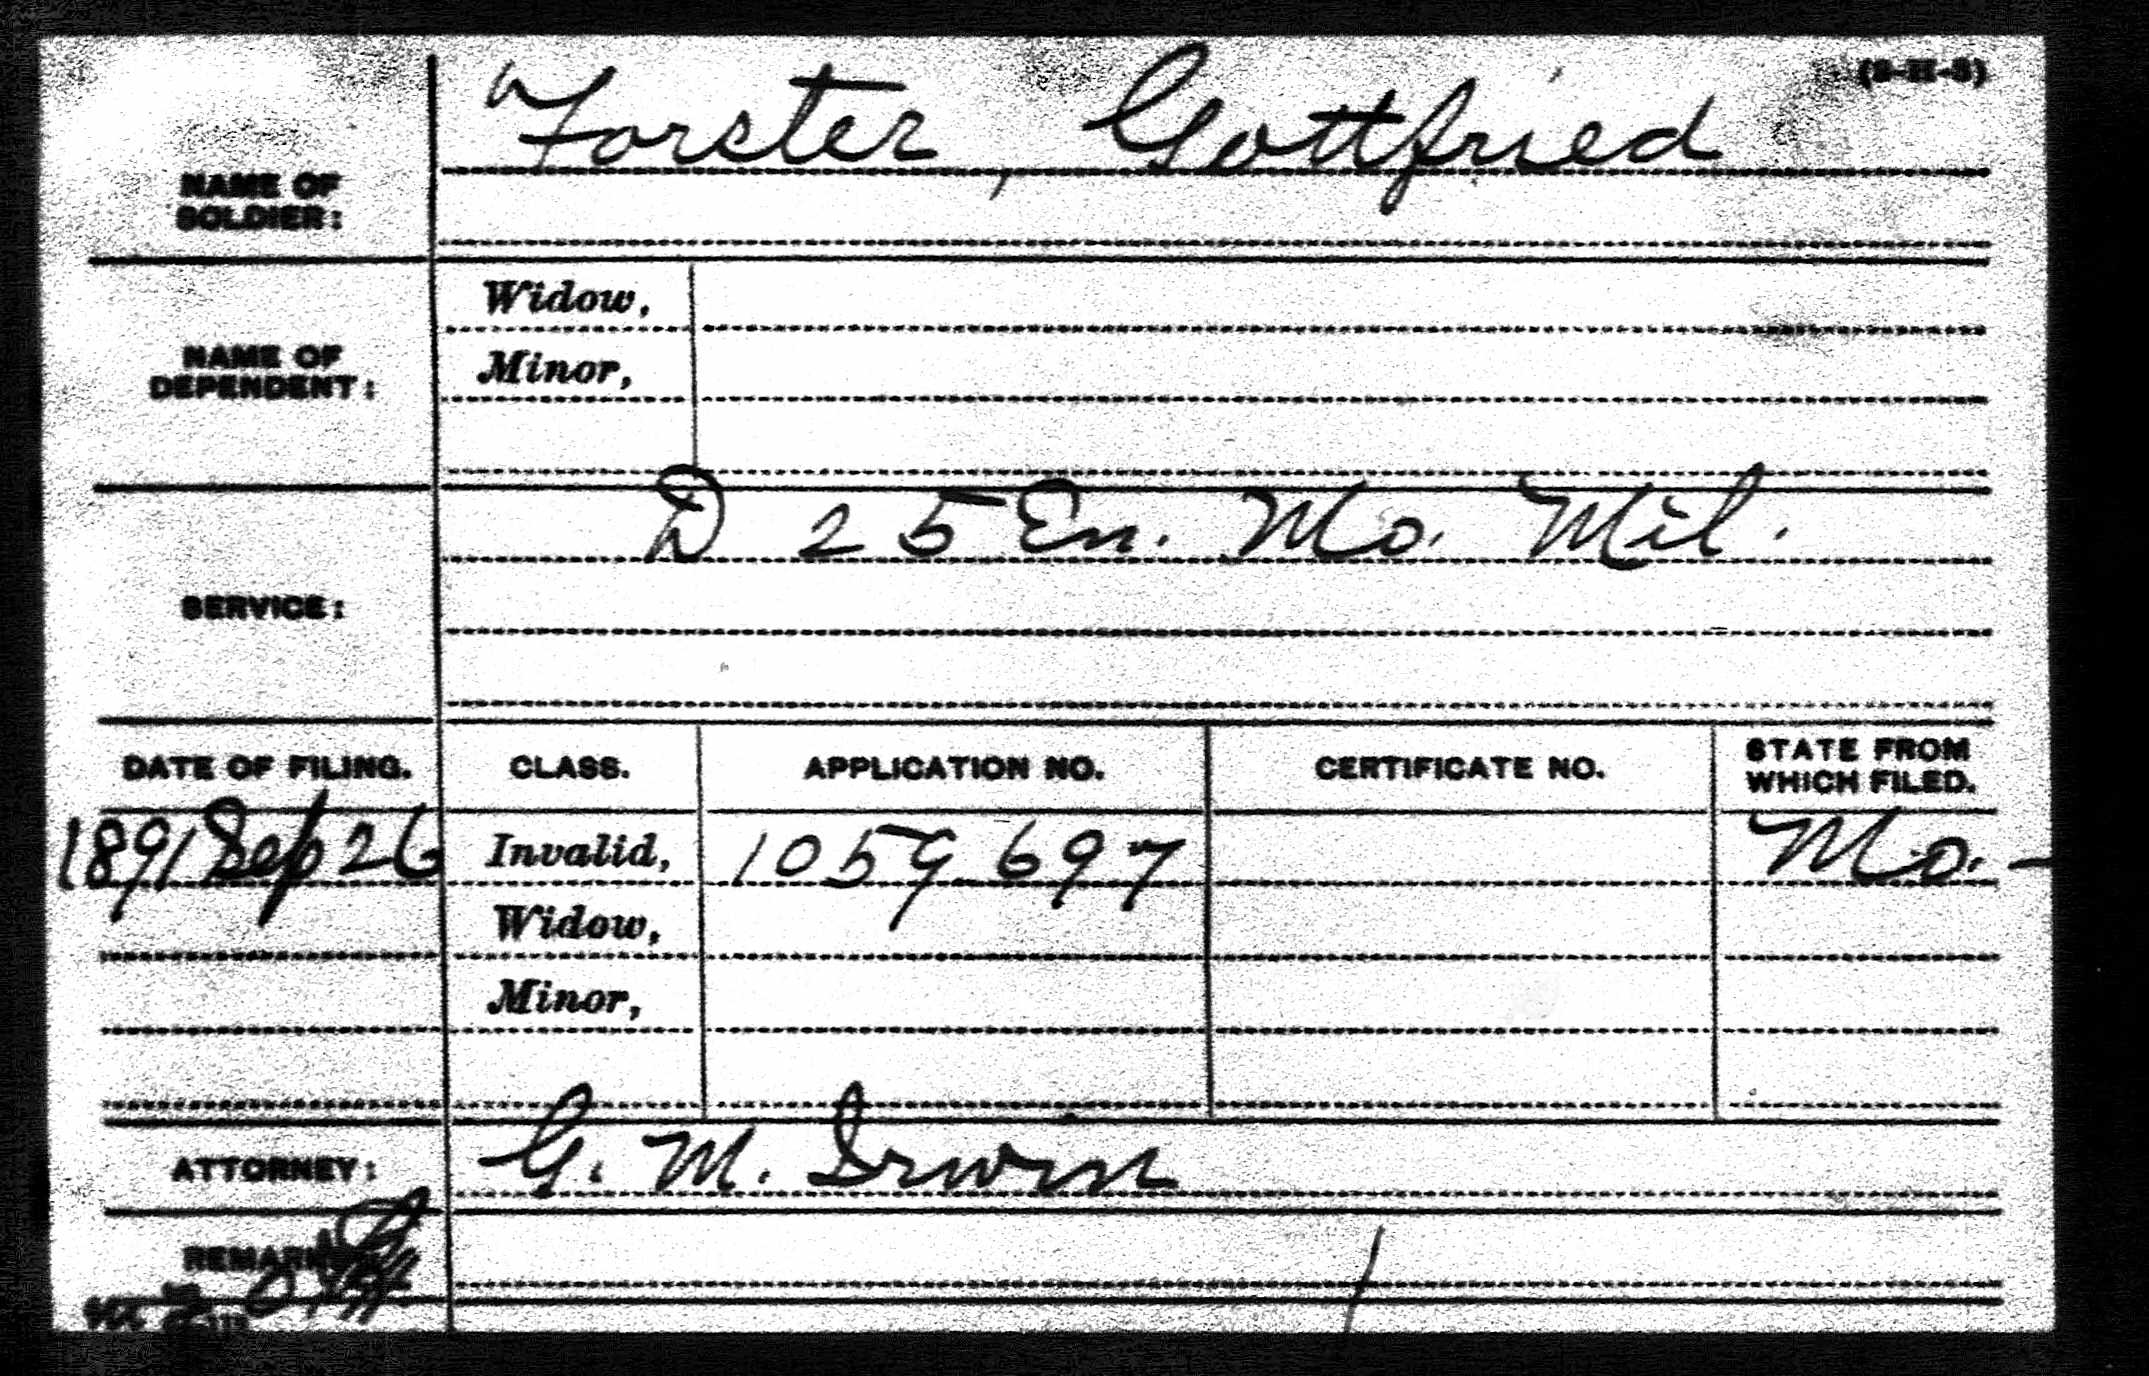 (3-H-3)
Forster, Gottfried
NAME OF
SOLDIER:
Widow,
NAME OF
DEPENDENT:
Minor,
D 25 En. Mo. Mil.
SERVICE:
DATE OF FILING. CLASS. APPLICATION NO. CERTIFICATE NO. STATE FROM WHICH FILED.
1891 Sep 26 Invalid, 1059 697 Mo. -
Widow,
Minor,
ATTORNEY: G. M. Irwin
REMARKS: